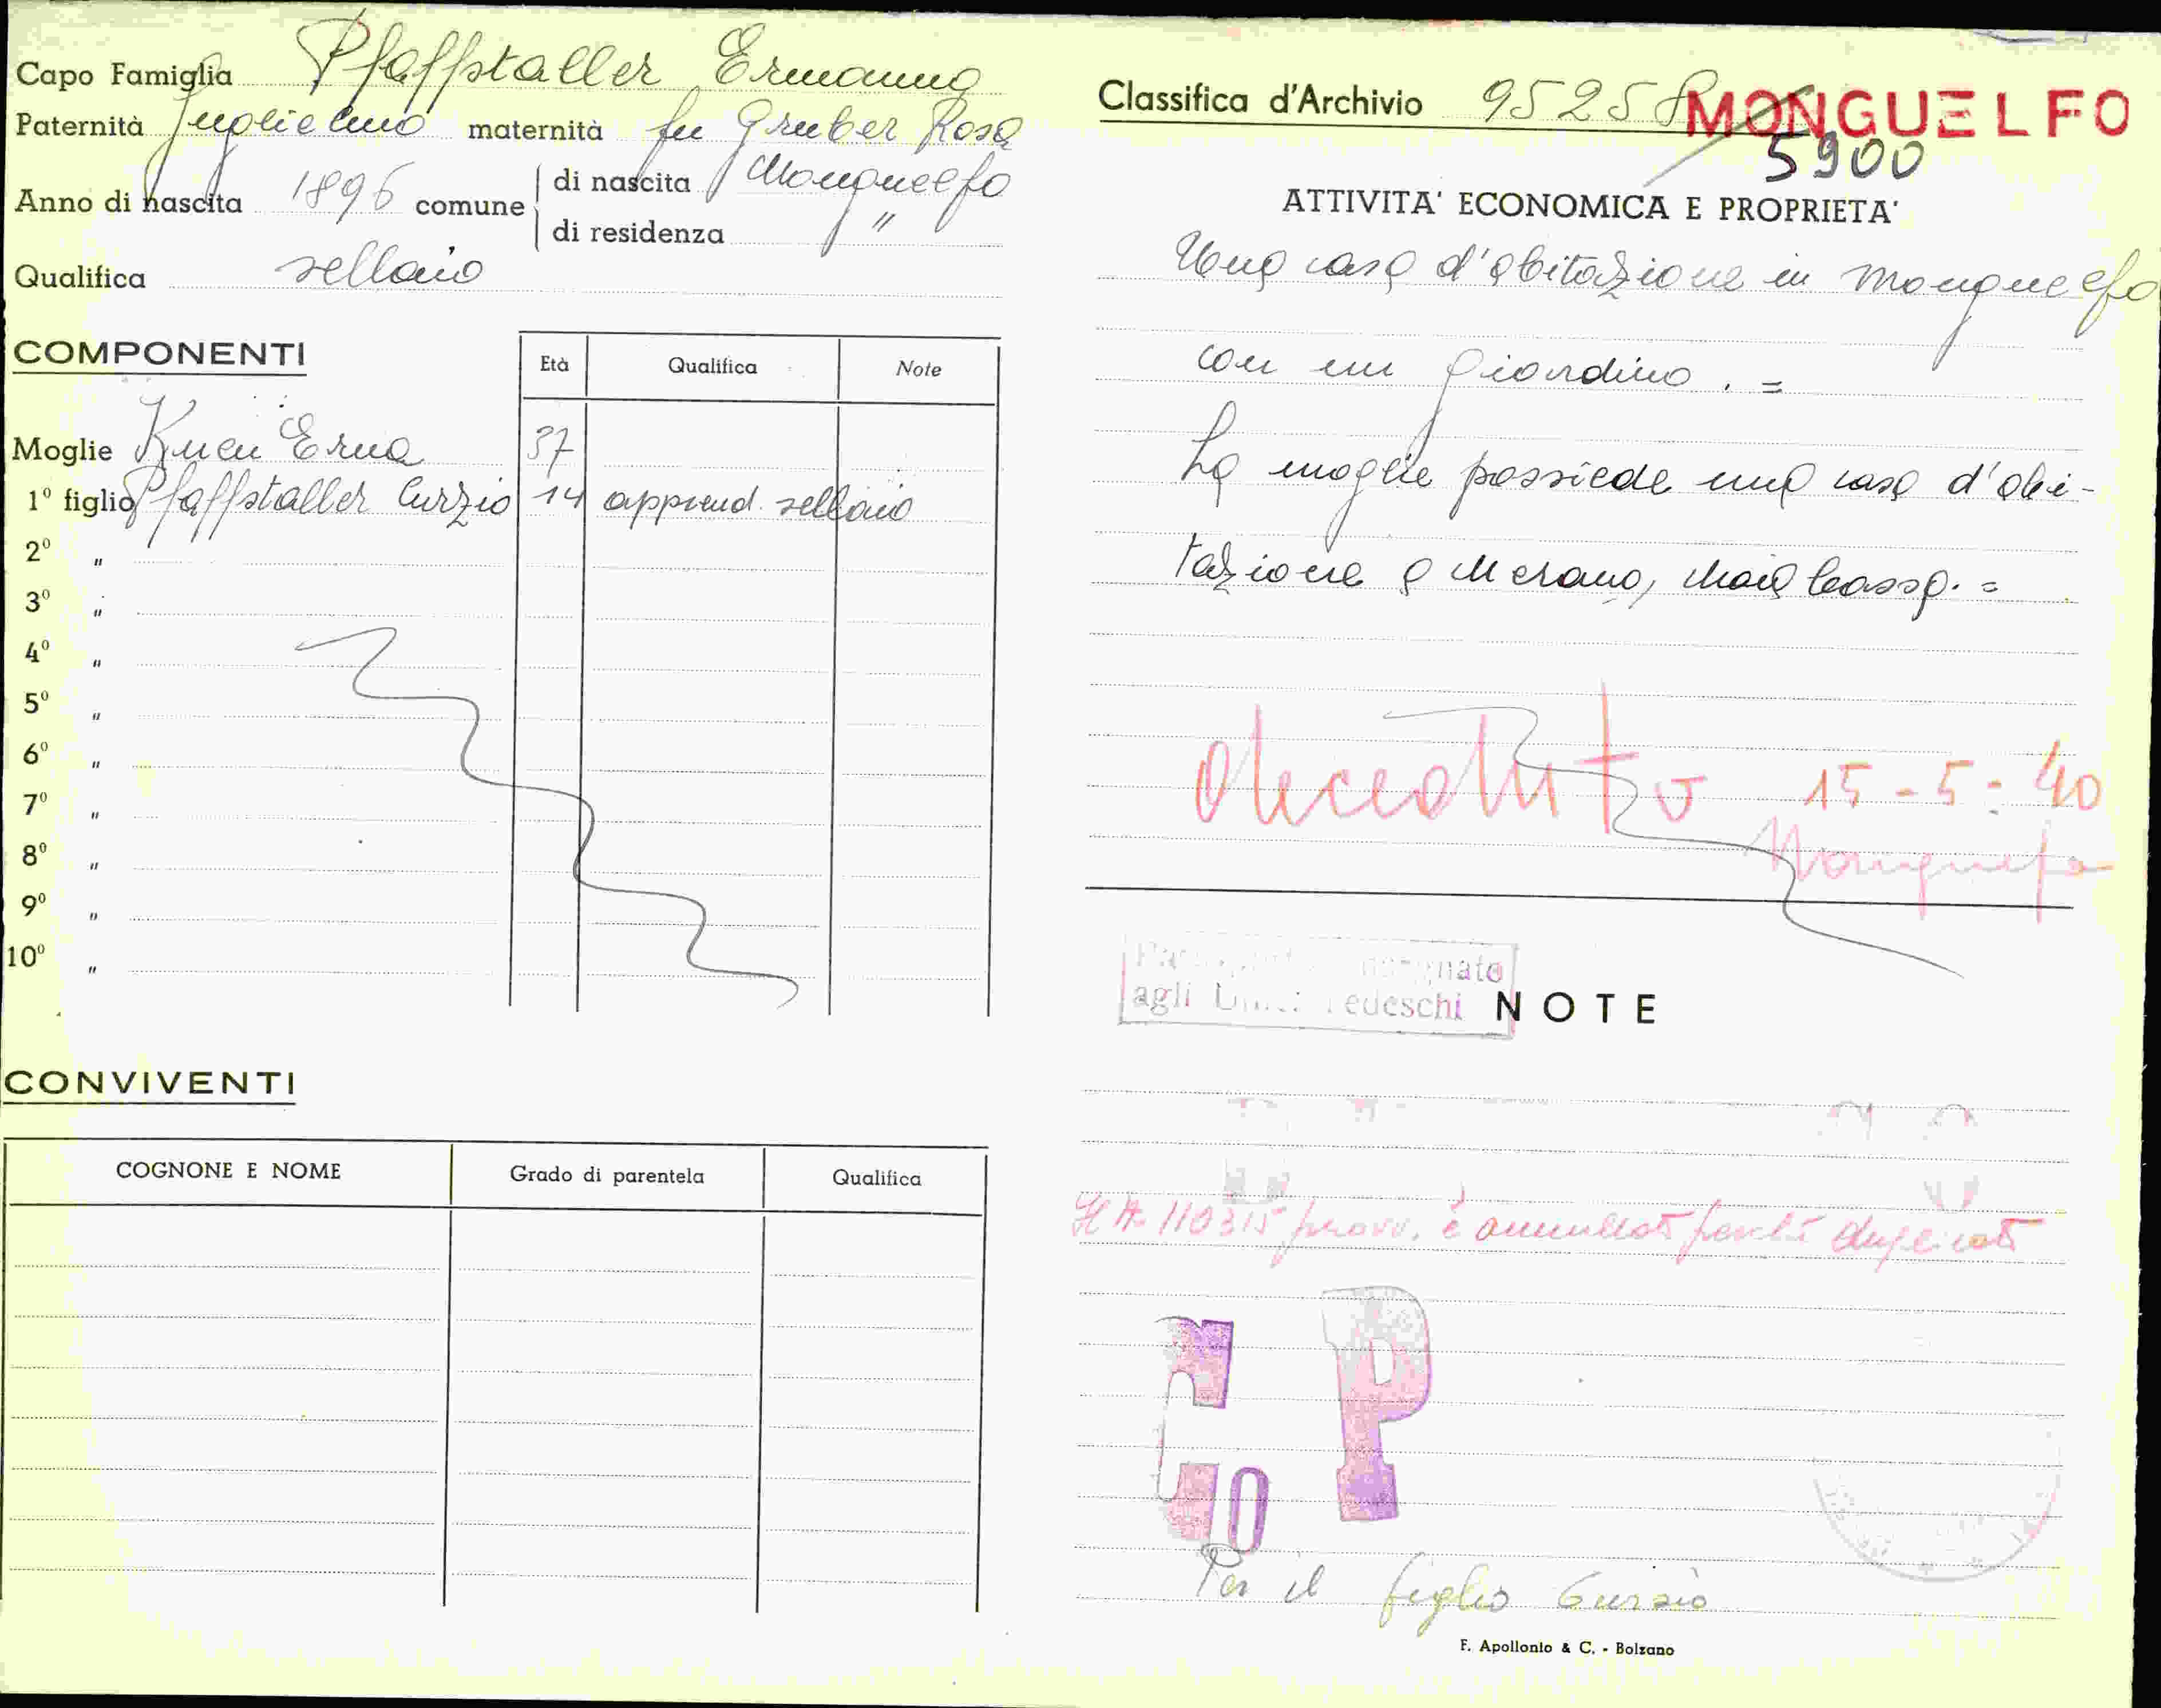 Capo Famiglia Pfaffstaller Ermanno
Paternità Guglielmo maternità fu Gruber Rosa
Anno di nascita 1896 comune di nascita Monguelfo
di residenza "
Qualifica sellaio
COMPONENTI
Età Qualifica Note
Moglie Kuen Erna 37
1º figlio Pfaffstaller Curzio 14 apprend. sellaio
2º "
3º "
4º "
5º "
6º "
7º "
8º "
9º "
10º "
CONVIVENTI
COGNONE E NOME Grado di parentela Qualifica
Classifica d'Archivio 95258 MONGUELFO
5900
ATTIVITA' ECONOMICA E PROPRIETA'
Una casa d'abitazione in Monguelfo
con un giardino. =
La moglie possiede una casa d'abi-
tazione a Merano, Maia bassa. =
deceduto 15-5-40
Monguelfo
agli Tedeschi
NOTE
110315 provv. è annullato perché duplicato
P
10
Per il figlio Curzio
F. Apollonio & C. - Bolzano